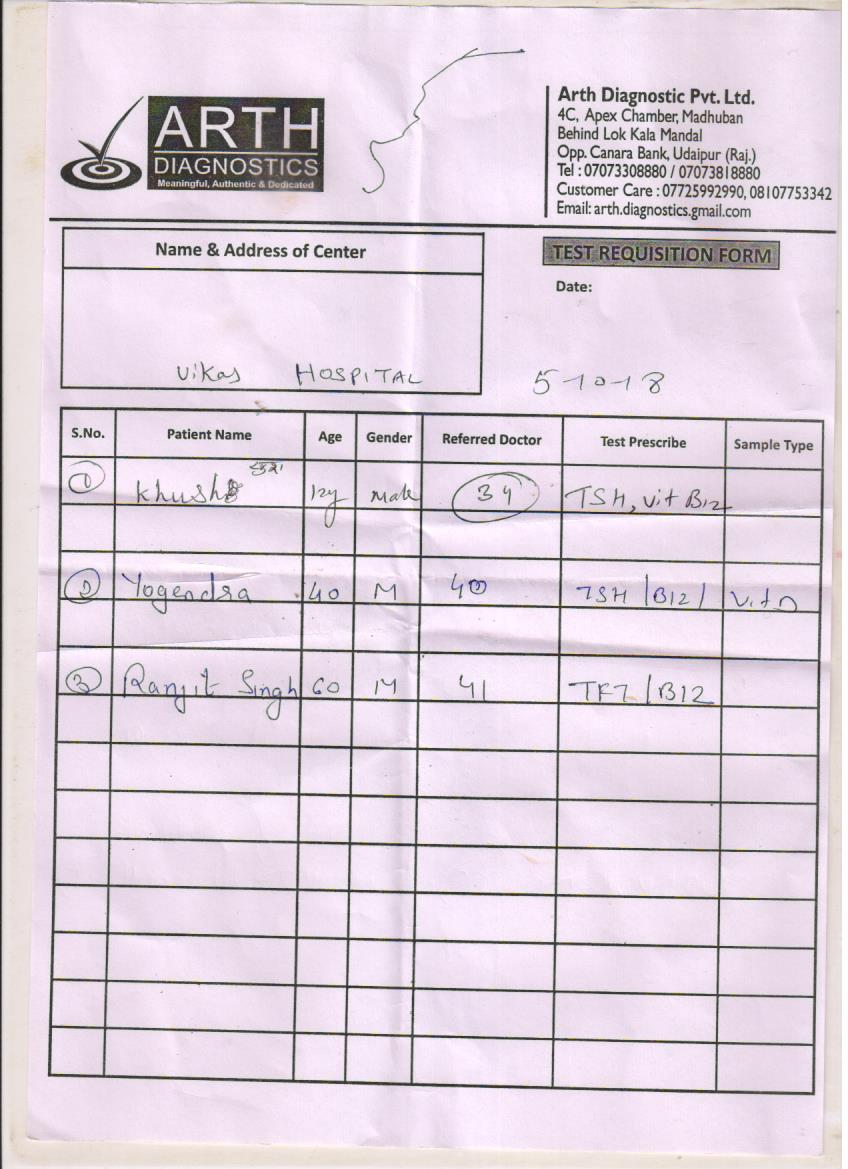 ARTH
DIAGNOSTICS
Meaningful, Authentic & Dedicated
Arth Diagnostic Pvt. Ltd.
4C, Apex Chamber, Madhuban
Behind Lok Kala Mandal
Opp. Canara Bank, Udaipur (Raj.)
Tel : 07073308880 / 07073818880
Customer Care : 07725992990, 08107753342
Email: arth.diagnostics.gmail.com
Name & Address of Center
TEST REQUISITION FORM
Date:
Vikas HOSPITAL
5-10-18
S.No. Patient Name Age Gender Referred Doctor Test Prescribe Sample Type
1 12y Male 34 TSH, Vit B12
2 Yogendra 40 M 40 TSH /B12/ Vit D
3 Ranjit Singh 60 M 41 TFT /B12